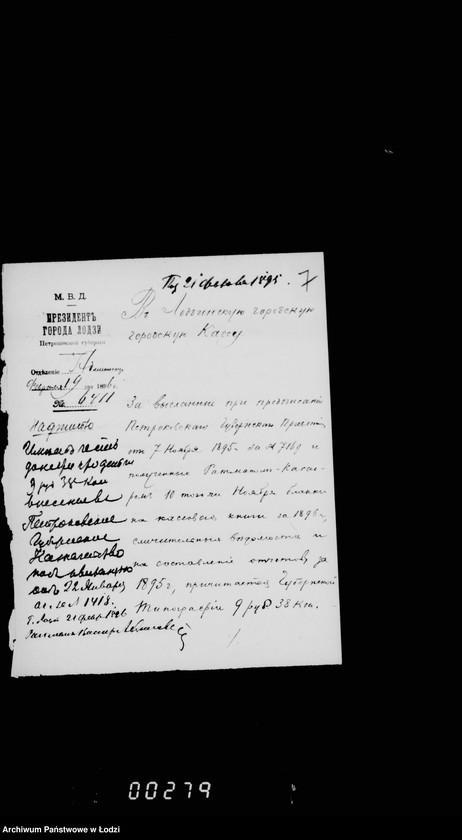 21 февраля 1895. 7
М. В. Д.
ПРЕЗИДЕНТЪ
ГОРОДА ЛОДЗИ
Петроковской губерніи
Отдѣленіе
Февраля 19 дня 1896 г.
№ 6411
Въ Лодзинскую городскую
городскую Кассу
За высланные при предписаніи
Петроковскаго Губернскаго Правленія
отъ 7 Ноября 1895 г. за № 7169 и
полученные Ратманомъ-Касси-
ромъ 10 того Ноября бланки
на кассовыя книги за 1896 г.,
сличительныя вѣдомости и
на составленіе отчетовъ за
1895 г., причитается Губернской
Типографіи 9 руб 38 коп.
Надписью
Имѣю честь
9 руб 38 коп
внесены въ
Петроковское
Губернское
Казначейство
22 Января
№ 1418.
Г. Лодзь 21 февр. 1896
Ратманъ Кассиръ
00279
Archiwum Państwowe w Łodzi